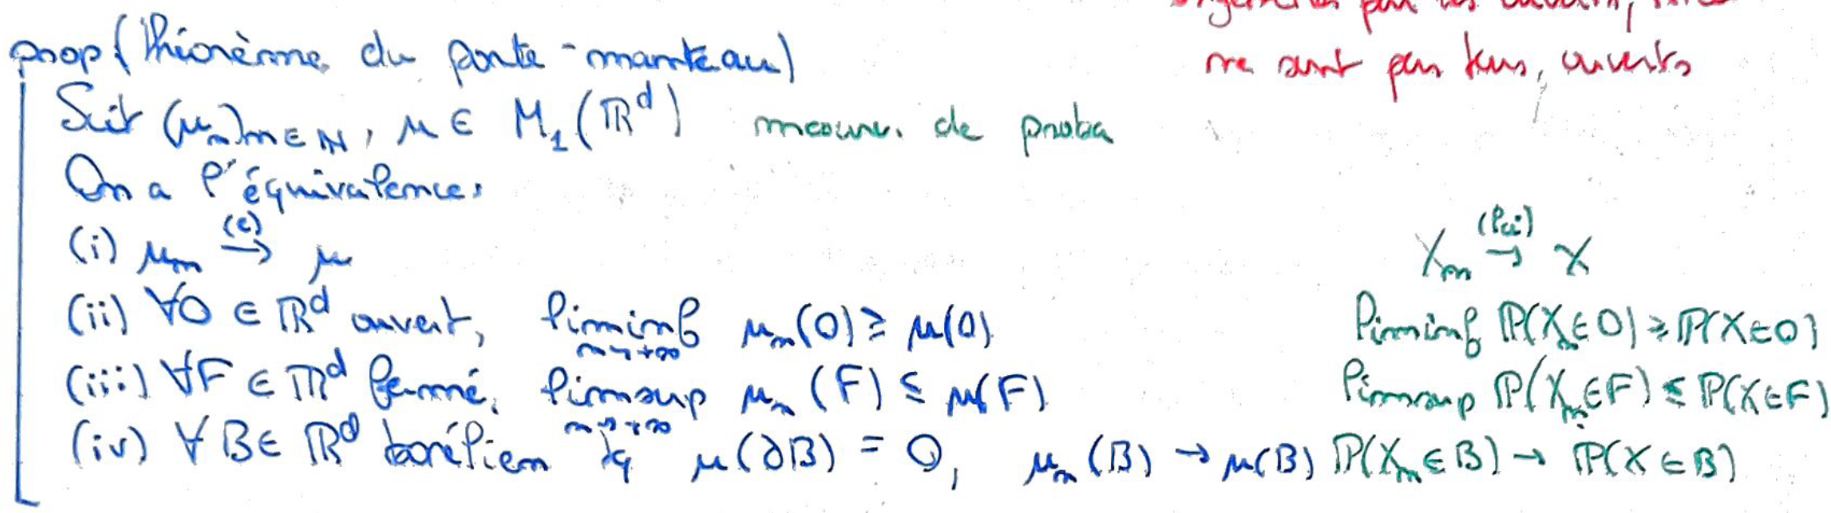 par les ouverts,
ne sont pas tous, ouverts
prop (théorème du porte-manteau)
Soit (μₙ)n∈ℕ, μ ∈ M₁(ℝᵈ) mesure. de proba
On a l'équivalence,
(i) μₙ →(e) μ Xₙ →(loi) X
(ii) ∀O ∈ ℝᵈ ouvert, liminf n→+∞ μₙ(O) ≥ μ(O) liminf ℙ(Xₙ∈O) ≥ ℙ(X∈O)
(iii) ∀F ∈ ℝᵈ fermé, limsup n→+∞ μₙ(F) ≤ μ(F) limsup ℙ(Xₙ∈F) ≤ ℙ(X∈F)
(iv) ∀B ∈ ℝᵈ borélien tq μ(∂B) = 0, μₙ(B) → μ(B) ℙ(Xₙ∈B) → ℙ(X∈B)